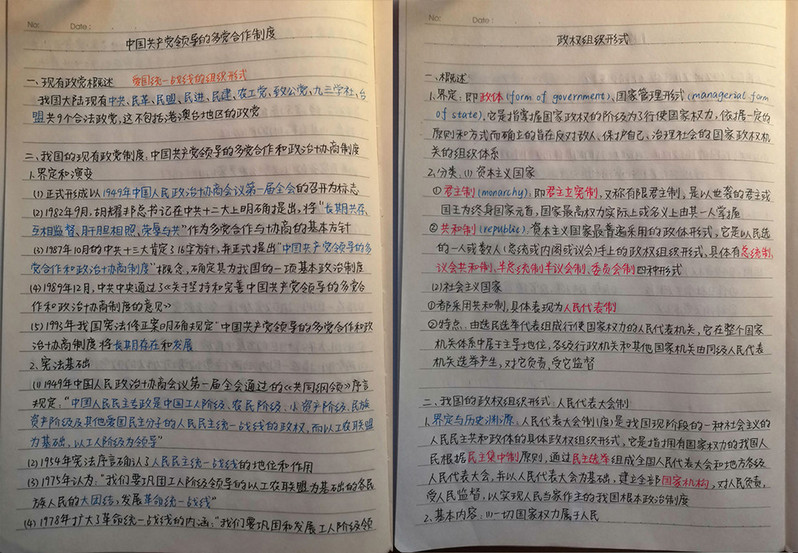 No:
Date:
中国共产党领导的多党合作制度
一、现有政党概述 爱国统一战线的组织形式
我国大陆现有中共、民革、民盟、民进、民建、农工党、致公党、九三学社、台
盟共9个合法政党,这不包括港澳台地区的政党
二、我国的现有政党制度:中国共产党领导的多党合作和政治协商制度
1.界定和演变
(1)正式形成以1949年中国人民政治协商会议第一届全会的召开为标志
(2)1982年9月,胡耀邦总书记在中共十二大上明确提出,将“长期共存、
互相监督、肝胆相照、荣辱与共”作为多党合作与协商的基本方针
(3)1987年10月的中共十三大肯定了16字方针,并正式提出“中国共产党领导的多
党合作和政治协商制度”概念,不确定其为我国的一项基本政治制度
(4)1989年12月,中共中央通过了《关于坚持和完善中国共产党领导的多党合
作和政治协商制度的意见》
(5)1993年我国宪法修正案明确规定“中国共产党领导的多党合作和政
治协商制度将长期存在和发展
2.宪法基础
(1)1949年中国人民政治协商会议第一届全会通过的《共同纲领》序言
规定:“中国人民民主专政是中国工人阶级、农民阶级、小资产阶级、民族
资产阶级及其他爱国民主分子的人民民主统一战线的政权,而以工农联盟
为基础,以工人阶级为领导”
(2)1954年宪法序言确认了人民民主统一战线的地位和作用
(3)1975年认为:“我们要巩固工人阶级领导的以工农联盟为基础的各民
族人民的大团结,发展革命统一战线”
(4)1978年扩大了革命统一战线的内涵:“我们要巩固和发展工人阶级领
No:
Date:
政权组织形式
一、概述
1.界定:即政体(form of government)、国家管理形式(managerial form
of state),它是指掌握国家政权的阶级为了行使国家权力,依据一定的
原则和方式而确立的旨在反对敌人、保护自己、治理社会的国家政权机
关的组织体系
2.分类:(1)资本主义国家
①君主制(monarchy):即君主立宪制,又称有限君主制,是以世袭的君主或
国王为终身国家元首,国家最高权力实际上或名义上由其一人掌握
②共和制(republic):资本主义国家最普遍采用的政体形式,它是以民选
的一人或数人(总统或内阁或议会)手上的政权组织形式,具体有总统制,
议会共和制,半总统制半议会制,委员会制四种形式
(2)社会主义国家
①都采用共和制,具体表现为人民代表制
②特点:由选民选举代表组成行使国家权力的人民代表机关,它在整个国家
机关体系中属于主导地位,各级行政机关和其他国家机关由同级人民代表
机关选举产生,对它负责,受它监督
二、我国的政权组织形式:人民代表大会制
1.界定与历史渊源:人民代表大会制(度)是我国现阶段的一种社会主义的
人民民主共和政体的具体政权组织形式,它是指拥有国家权力的我国人
民根据民主集中制原则,通过民主选举组成全国人民代表大会和地方各级
人民代表大会,并以人民代表大会为基础,建立全部国家机构,对人民负责,
受人民监督,以实现人民当家作主的我国根本政治制度
2.基本内容:(1)一切国家权力属于人民